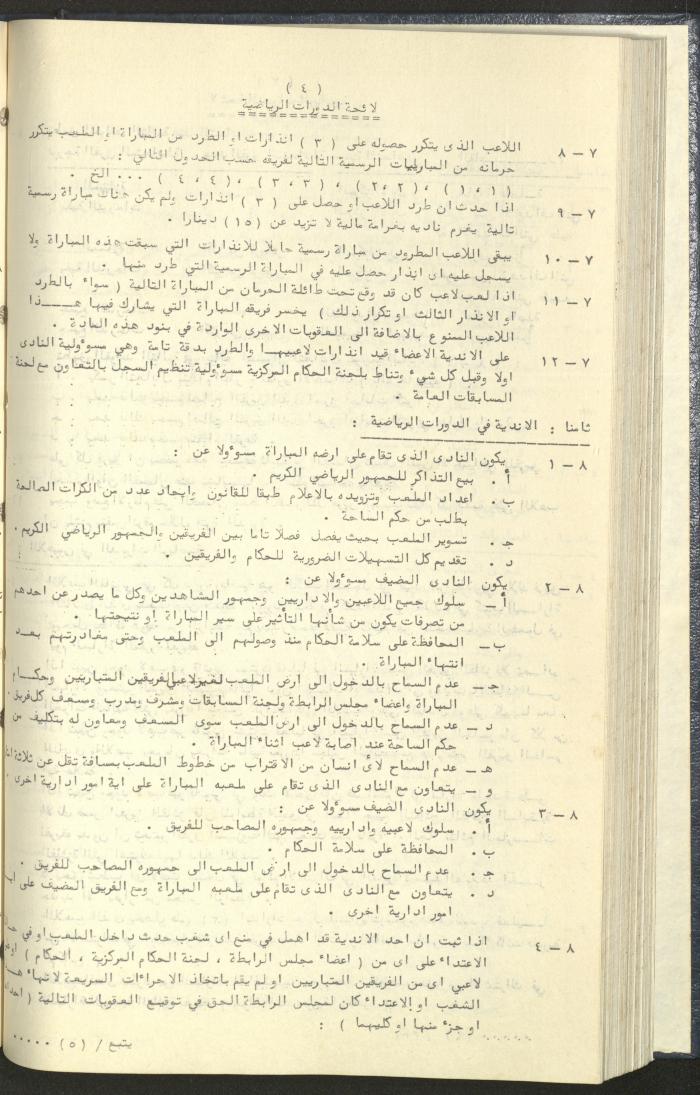 ( ٤ )
لائحة الدورات الرياضية
٧ – ٨ اللاعب الذى يتكرر حصوله على ( ٣ ) انذارات او الطرد من المباراة او الملعب يتكرر
حرمانه من المباريات الرسمية التالية لفريقه حسب الجدول التالي :
( ١ ، ١ ) ، ( ٢ ، ٢ ) ، ( ٣ ، ٣ ) ، ( ٤ ، ٤ ) ... الخ .
٧ – ٩ اذا حدث ان طرد اللاعب او حصل على ( ٣ ) انذارات ولم يكن هناك مباراة رسمية
تالية يغرم ناديه بغرامة مالية لا تزيد عن (١٥) دينارا .
٧ – ١٠ يبقى اللاعب المطرود من مباراة رسمية حاملا للانذارات التي سبقت هذه المباراة ولا
يسجل عليه اى انذار حصل عليه في المباراة الرسمية التي طرد منها .
٧ – ١١ اذا لعب لاعب كان قد وقع تحت طائلة الحرمان من المباراة التالية ( سواء بالطرد
او الانذار الثالث او تكرار ذلك ) يخسر فريقه المباراة التي يشارك فيها هـــــذا
اللاعب الممنوع بالاضافة الى العقوبات الاخرى الواردة في بنود هذه المادة .
٧ – ١٢ على الاندية الاعضاء قيد انذارات لاعبيهـــا والطرد بدقة تامة وهي مسؤولية النادى
اولا وقبل كل شيء وتناط بلجنة الحكام المركزية مسؤولية تنظيم السجل بالتعاون مع لجنة
المسابقات العامة .
ثامنا : الاندية في الدورات الرياضية :
٨ – ١ يكون النادى الذى تقام على ارضه المباراة مسؤولا عن :
أ . بيع التذاكر للجمهور الرياضي الكريم .
ب . اعداد الملعب وتزويده بالاعلام طبقا للقانون وايجاد عدد من الكرات الصالحة
بطلب من حكم الساحة .
جـ . تسوير الملعب بحيث يفصل فصلا تاما بين الفريقين والجمهور الرياضي الكريم .
د . تقديم كل التسهيلات الضرورية للحكام والفريقين .
٨ – ٢ يكون النادى المضيف مسؤولا عن :
أ – سلوك جميع اللاعبين والاداريين وجمهور المشاهدين وكل ما يصدر عن احدهم
من تصرفات يكون من شأنها التأثير على سير المباراة او نتيجتها .
ب – المحافظة على سلامة الحكام منذ وصولهم الى الملعب وحتى مغادرتهم بعـــد
انتهاء المباراة .
جـ – عدم السماح بالدخول الى ارض الملعب لغير لاعبي الفريقين المتباريين وحكـــام
المباراة واعضاء مجلس الرابطة ولجنة المسابقات ومشرف ومدرب ومسعف كل فريق .
د – عدم السماح بالدخول الى ارض الملعب سوى المسعف ومعاون له بتكليف من
حكم الساحة عند اصابة لاعب اثناء المباراة .
هـ – عدم السماح لأى انسان من الاقتراب من خطوط الملعب بمسافة تقل عن ثلاثة
و – يتعاون مع النادى الذى تقام على ملعبه المباراة على اية امور ادارية اخرى .
٨ – ٣ يكون النادى الضيف مسؤولا عن :
أ . سلوك لاعبيه وادارييه وجمهوره المصاحب للفريق .
ب . المحافظة على سلامة الحكام .
جـ . عدم السماح بالدخول الى ارض الملعب الى جمهوره المصاحب للفريق .
د . يتعاون مع النادى الذى تقام على ملعبه المباراة ومع الفريق المضيف على
امور ادارية اخرى .
٨ – ٤ اذا ثبت ان احد الاندية قد اهمل في منع اى شغب حدث داخل الملعب او في
الاعتداء على اى من ( اعضاء مجلس الرابطة ، لجنة الحكام المركزية ، الحكام )
لاعبي اى من الفريقين المتباريين او لم يقم باتخاذ الاجراءات السريعة لانهاء
الشغب او الاعتداء كان لمجلس الرابطة الحق في توقيع العقوبات التالية (
او جزء منها او كليهما ) :
يتبع / (٥) .....